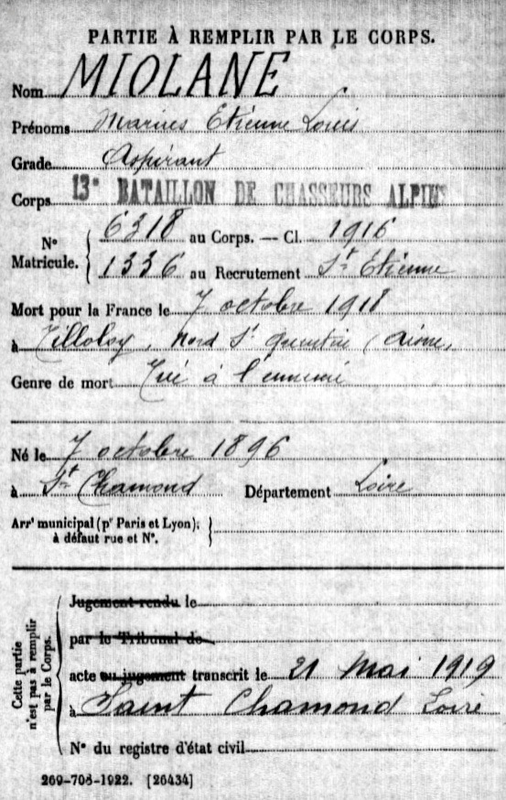 PARTIE À REMPLIR PAR LE CORPS.
Nom MIOLANE
Prénoms Marius Etienne Louis
Grade Aspirant
Corps 13e BATAILLON DE CHASSEURS ALPINS
N° Matricule. 6318 au Corps. — Cl. 1916
1336 au Recrutement St Etienne
Mort pour la France le 7 octobre 1918
à Tilloloy, nord St Quentin (Aisne)
Genre de mort Tué à l'ennemi
Né le 7 octobre 1896
à St Chamond Département Loire
Arrt municipal (pr Paris et Lyon),
à défaut rue et N°.
Cette partie n'est pas à remplir par le Corps.
Jugement rendu le
par le Tribunal de
acte ou jugement transcrit le 21 Mai 1919
à Saint Chamond Loire
N° du registre d'état civil
269-708-1922. [26434]